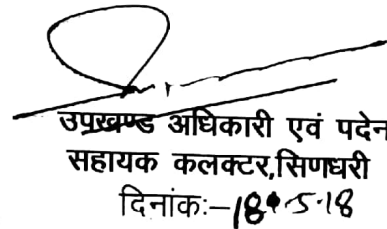 उपखण्ड अधिकारी एवं पदेन
सहायक कलक्टर,सिणधरी
दिनांक:-18.5.18